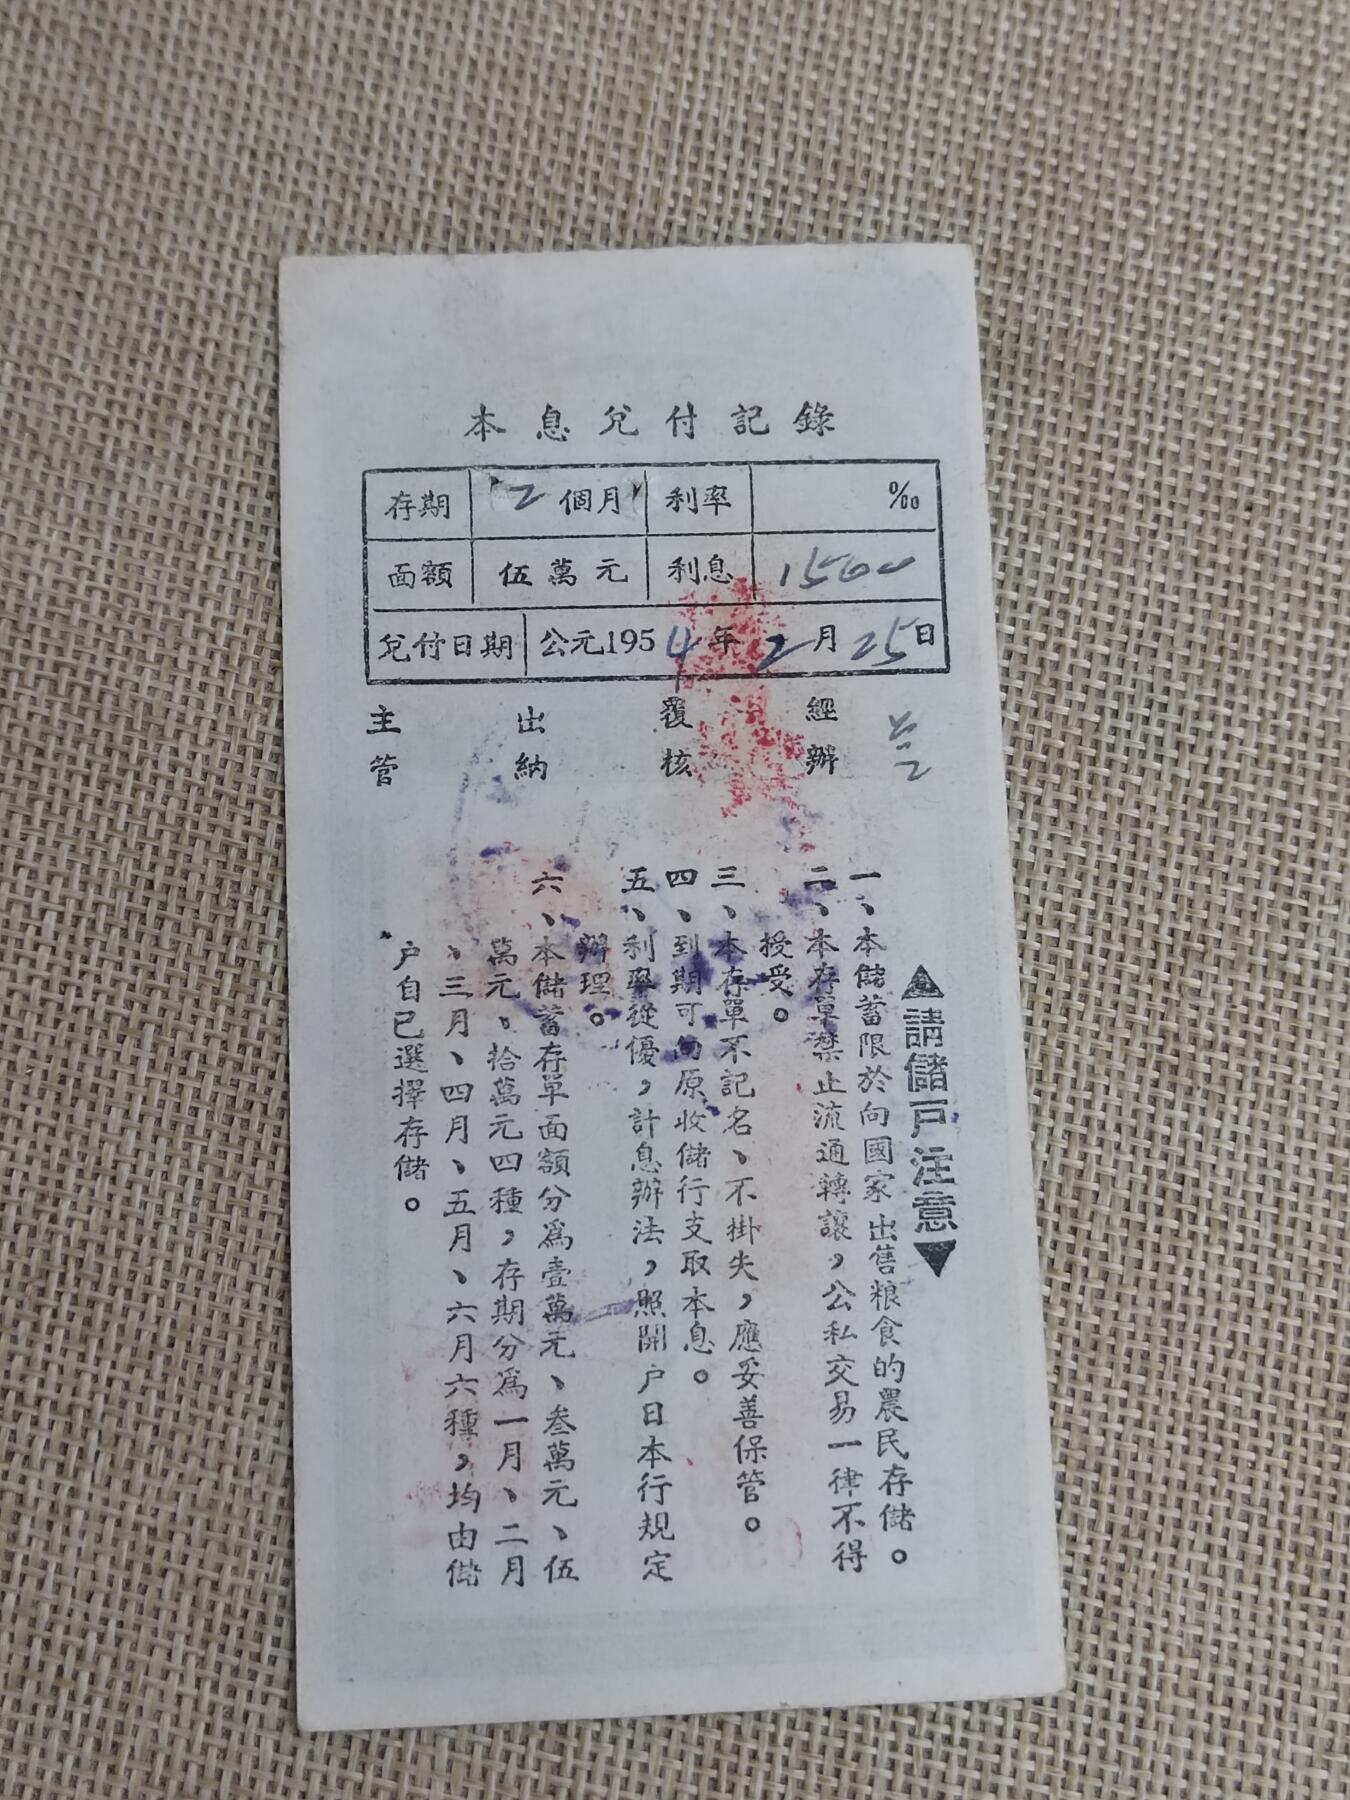 本息兌付記錄
存期 2個月 利率 ‰
面額 伍萬元 利息 1500
兌付日期 公元1954年2月25日
主管 出納 覆核 經辦
▲請儲戸注意▼
一、本儲蓄限於向國家出售粮食的農民存儲。
二、本存單禁止流通轉讓，公私交易一律不得
授受。
三、本存單不記名、不掛失，應妥善保管。
四、到期可向原收儲行支取本息。
五、利率從優，計息辦法，照開户日本行規定
辦理。
六、本儲蓄存單面額分爲壹萬元、叁萬元、伍
萬元、拾萬元四種，存期分爲一月、二月
、三月、四月、五月、六月六種，均由儲
户自己選擇存儲。